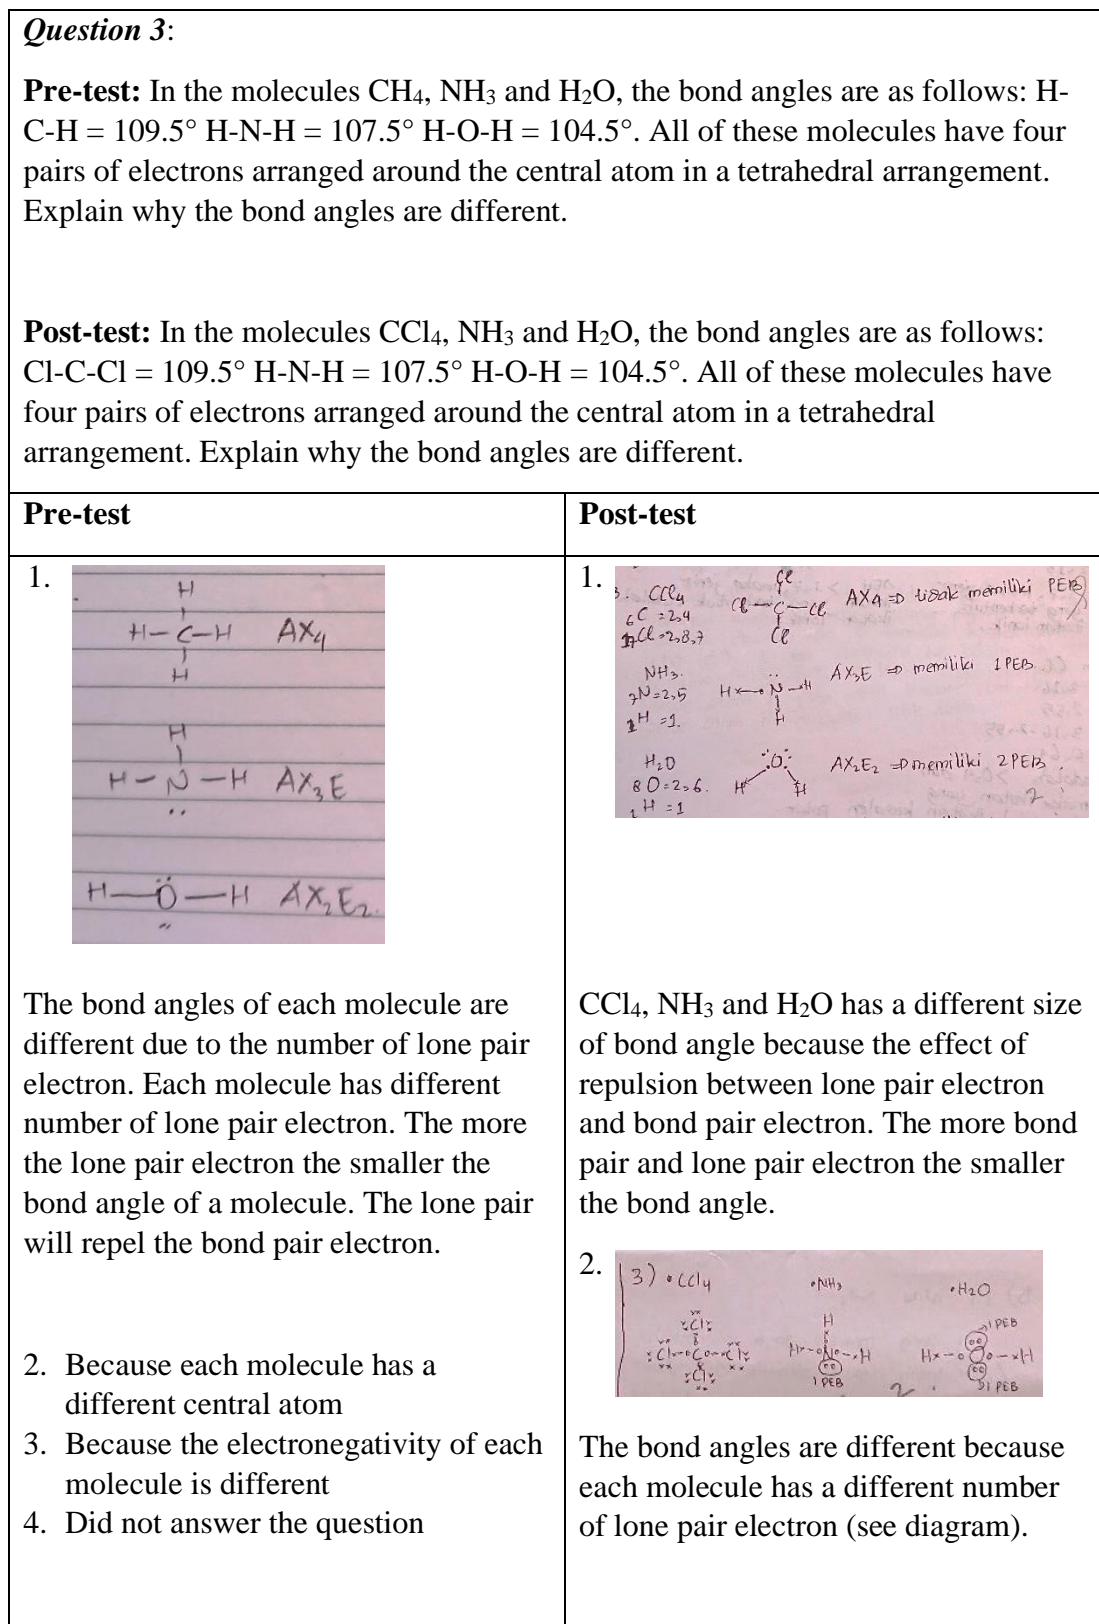 Question 3:
Pre-test: In the molecules CH₄, NH₃ and H₂O, the bond angles are as follows: H-
C-H = 109.5° H-N-H = 107.5° H-O-H = 104.5°. All of these molecules have four
pairs of electrons arranged around the central atom in a tetrahedral arrangement.
Explain why the bond angles are different.
Post-test: In the molecules CCl₄, NH₃ and H₂O, the bond angles are as follows:
Cl-C-Cl = 109.5° H-N-H = 107.5° H-O-H = 104.5°. All of these molecules have
four pairs of electrons arranged around the central atom in a tetrahedral
arrangement. Explain why the bond angles are different.
Pre-test
1.
H
H-C-H AX₄
H
H
H-N-H AX₃E
H-O-H AX₂E₂.
The bond angles of each molecule are
different due to the number of lone pair
electron. Each molecule has different
number of lone pair electron. The more
the lone pair electron the smaller the
bond angle of a molecule. The lone pair
will repel the bond pair electron.
2. Because each molecule has a
different central atom
3. Because the electronegativity of each
molecule is different
4. Did not answer the question
Post-test
1.
3. CCl₄
₆C = 2,4
₁₇Cl = 2,8,7
Cl
Cl-C-Cl
Cl
AX₄ ⇒ tidak memiliki PEB
NH₃.
₇N = 2,5
₁H = 1.
H N H
H
AX₃E ⇒ memiliki 1 PEB
H₂O
8 O = 2,6.
₁H = 1
O
H H
AX₂E₂ ⇒ memiliki 2 PEB
2
CCl₄, NH₃ and H₂O has a different size
of bond angle because the effect of
repulsion between lone pair electron
and bond pair electron. The more bond
pair and lone pair electron the smaller
the bond angle.
2.
3) • CCl₄ • NH₃ • H₂O
Cl
Cl C Cl
Cl
H
H N H
1 PEB
1 PEB
H O H
1 PEB
2
The bond angles are different because
each molecule has a different number
of lone pair electron (see diagram).